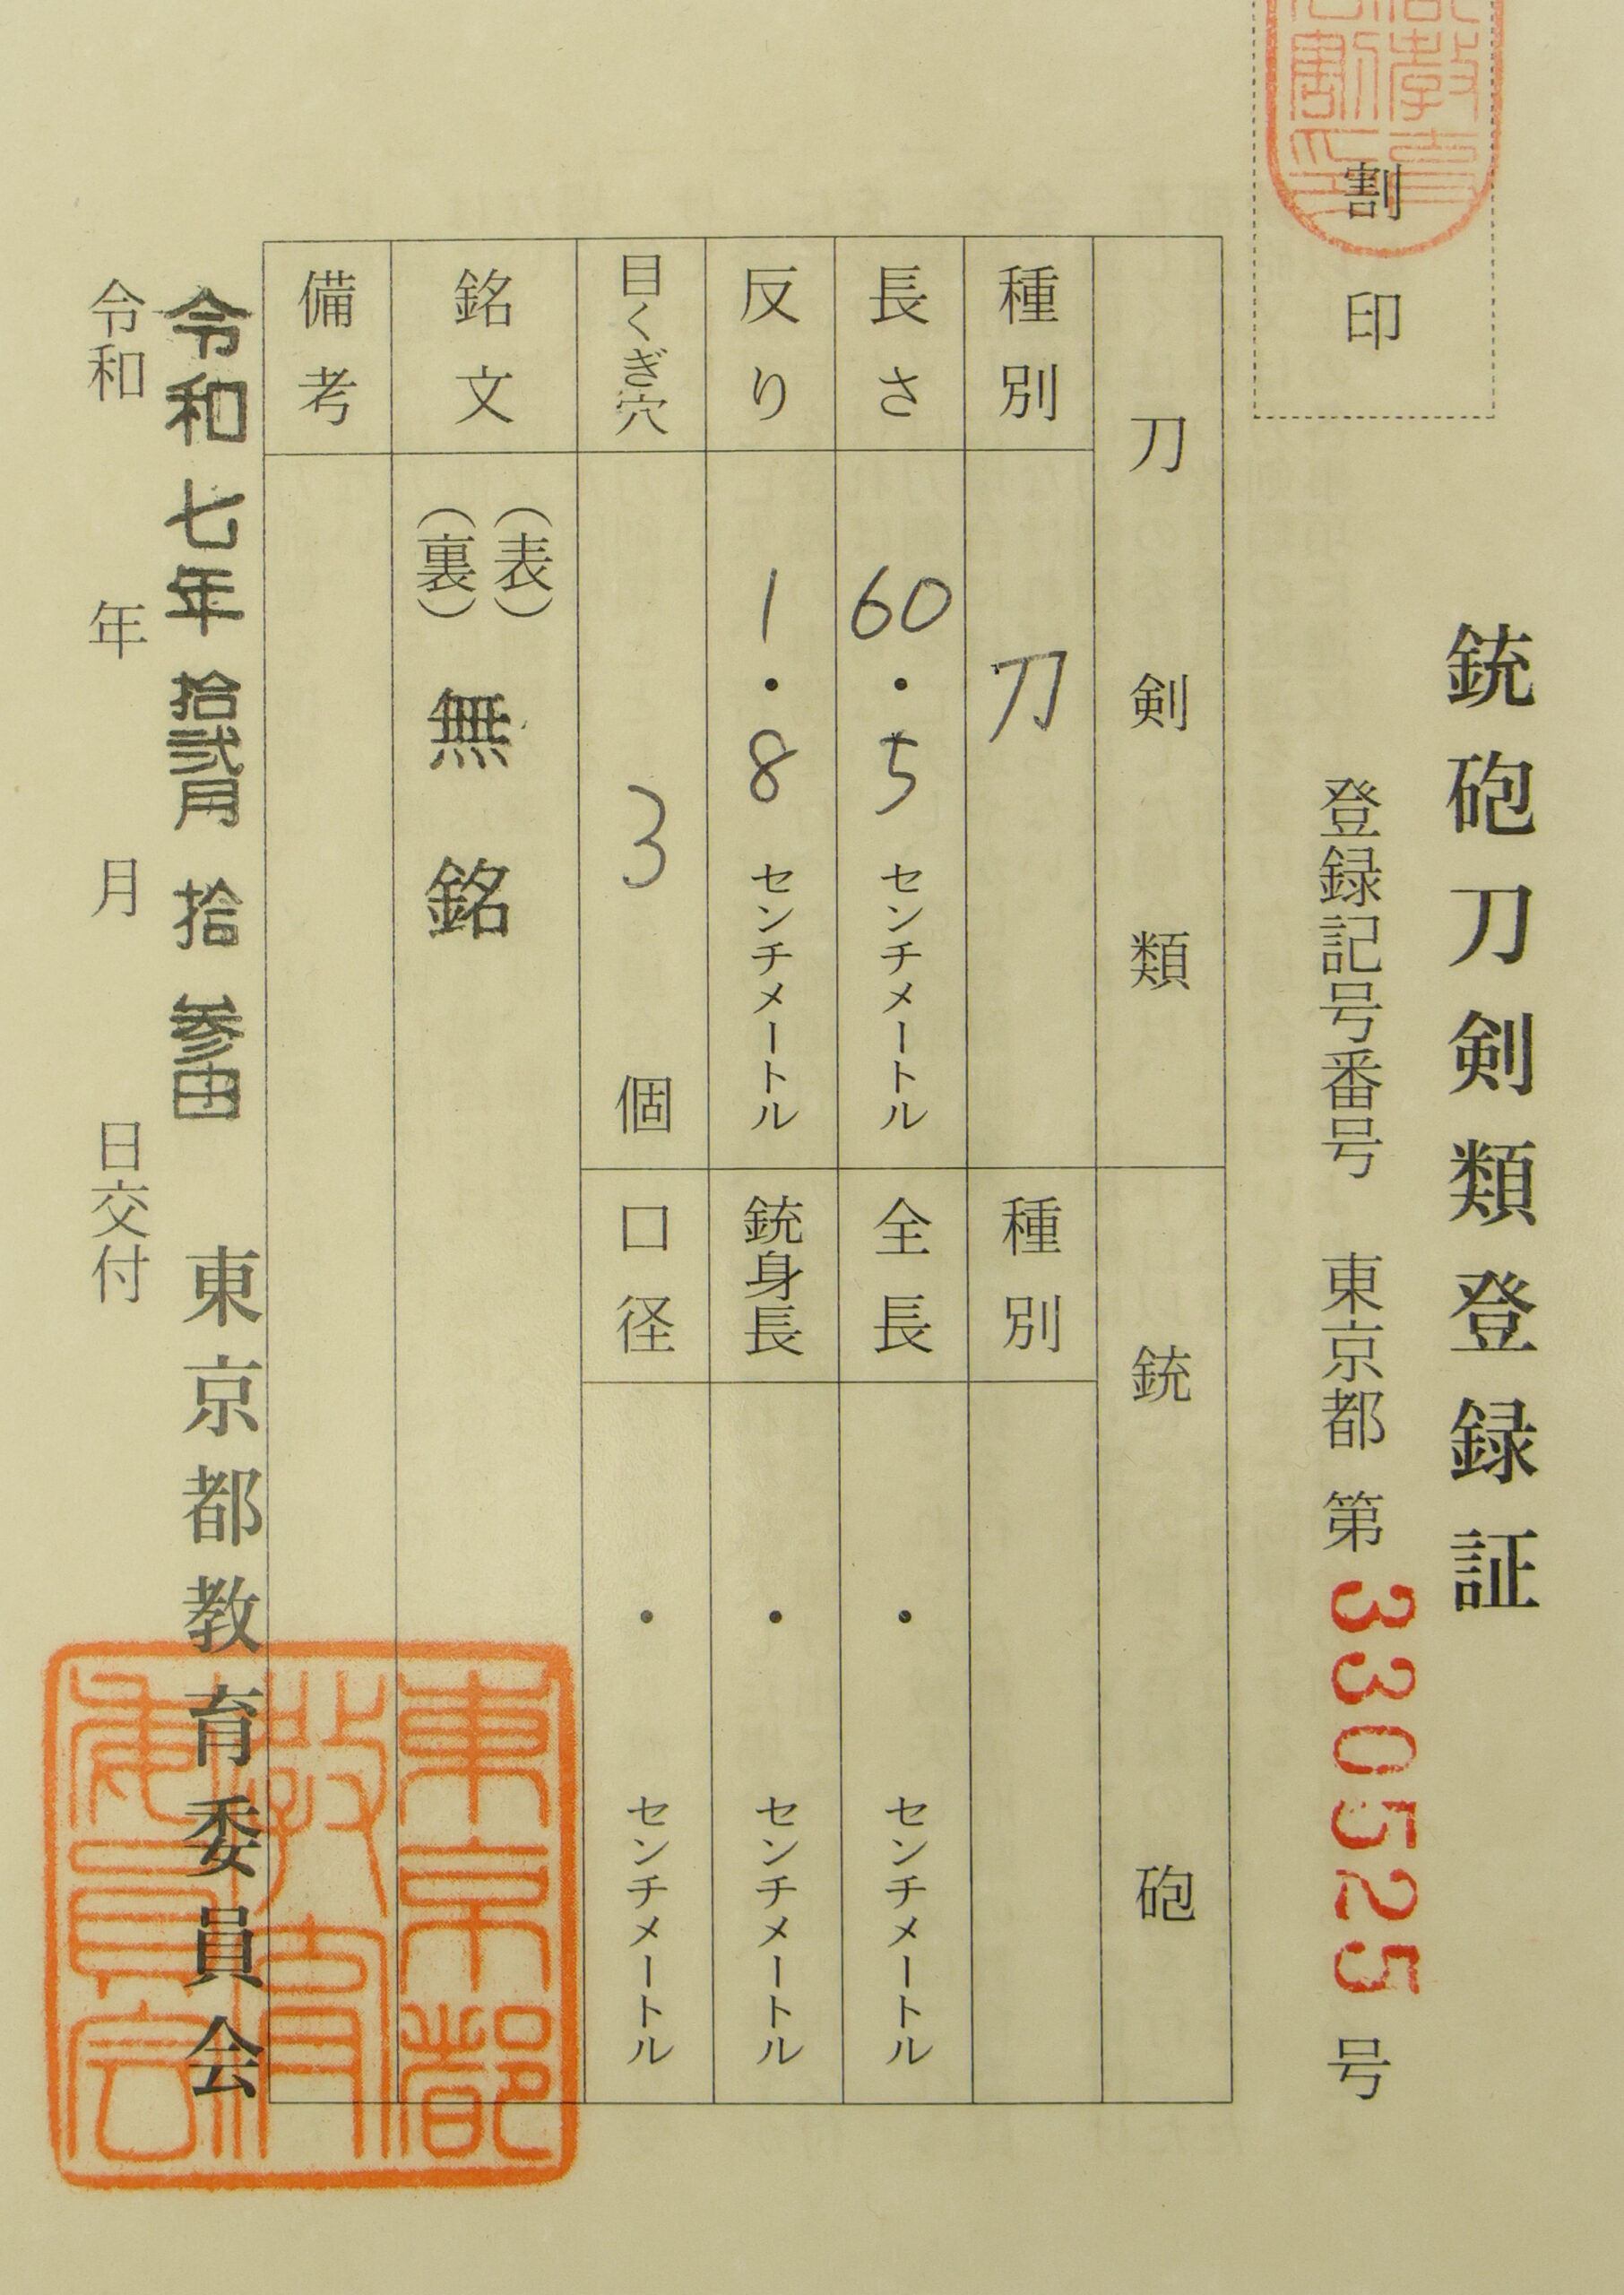 銃砲刀剣類登録証
割印
登録記号番号 東京都 第 330525 号
刀剣類 銃砲
種別 刀 種別
長さ 60・5 センチメートル 全長 ・ センチメートル
反り 1・8 センチメートル 銃身長 ・ センチメートル
目くぎ穴 3 個 口径 ・ センチメートル
銘文 (表)
(裏) 無銘
備考
令和七年拾弐月拾参日 東京都教育委員会
令和 年 月 日交付
東京都
教育
委員会